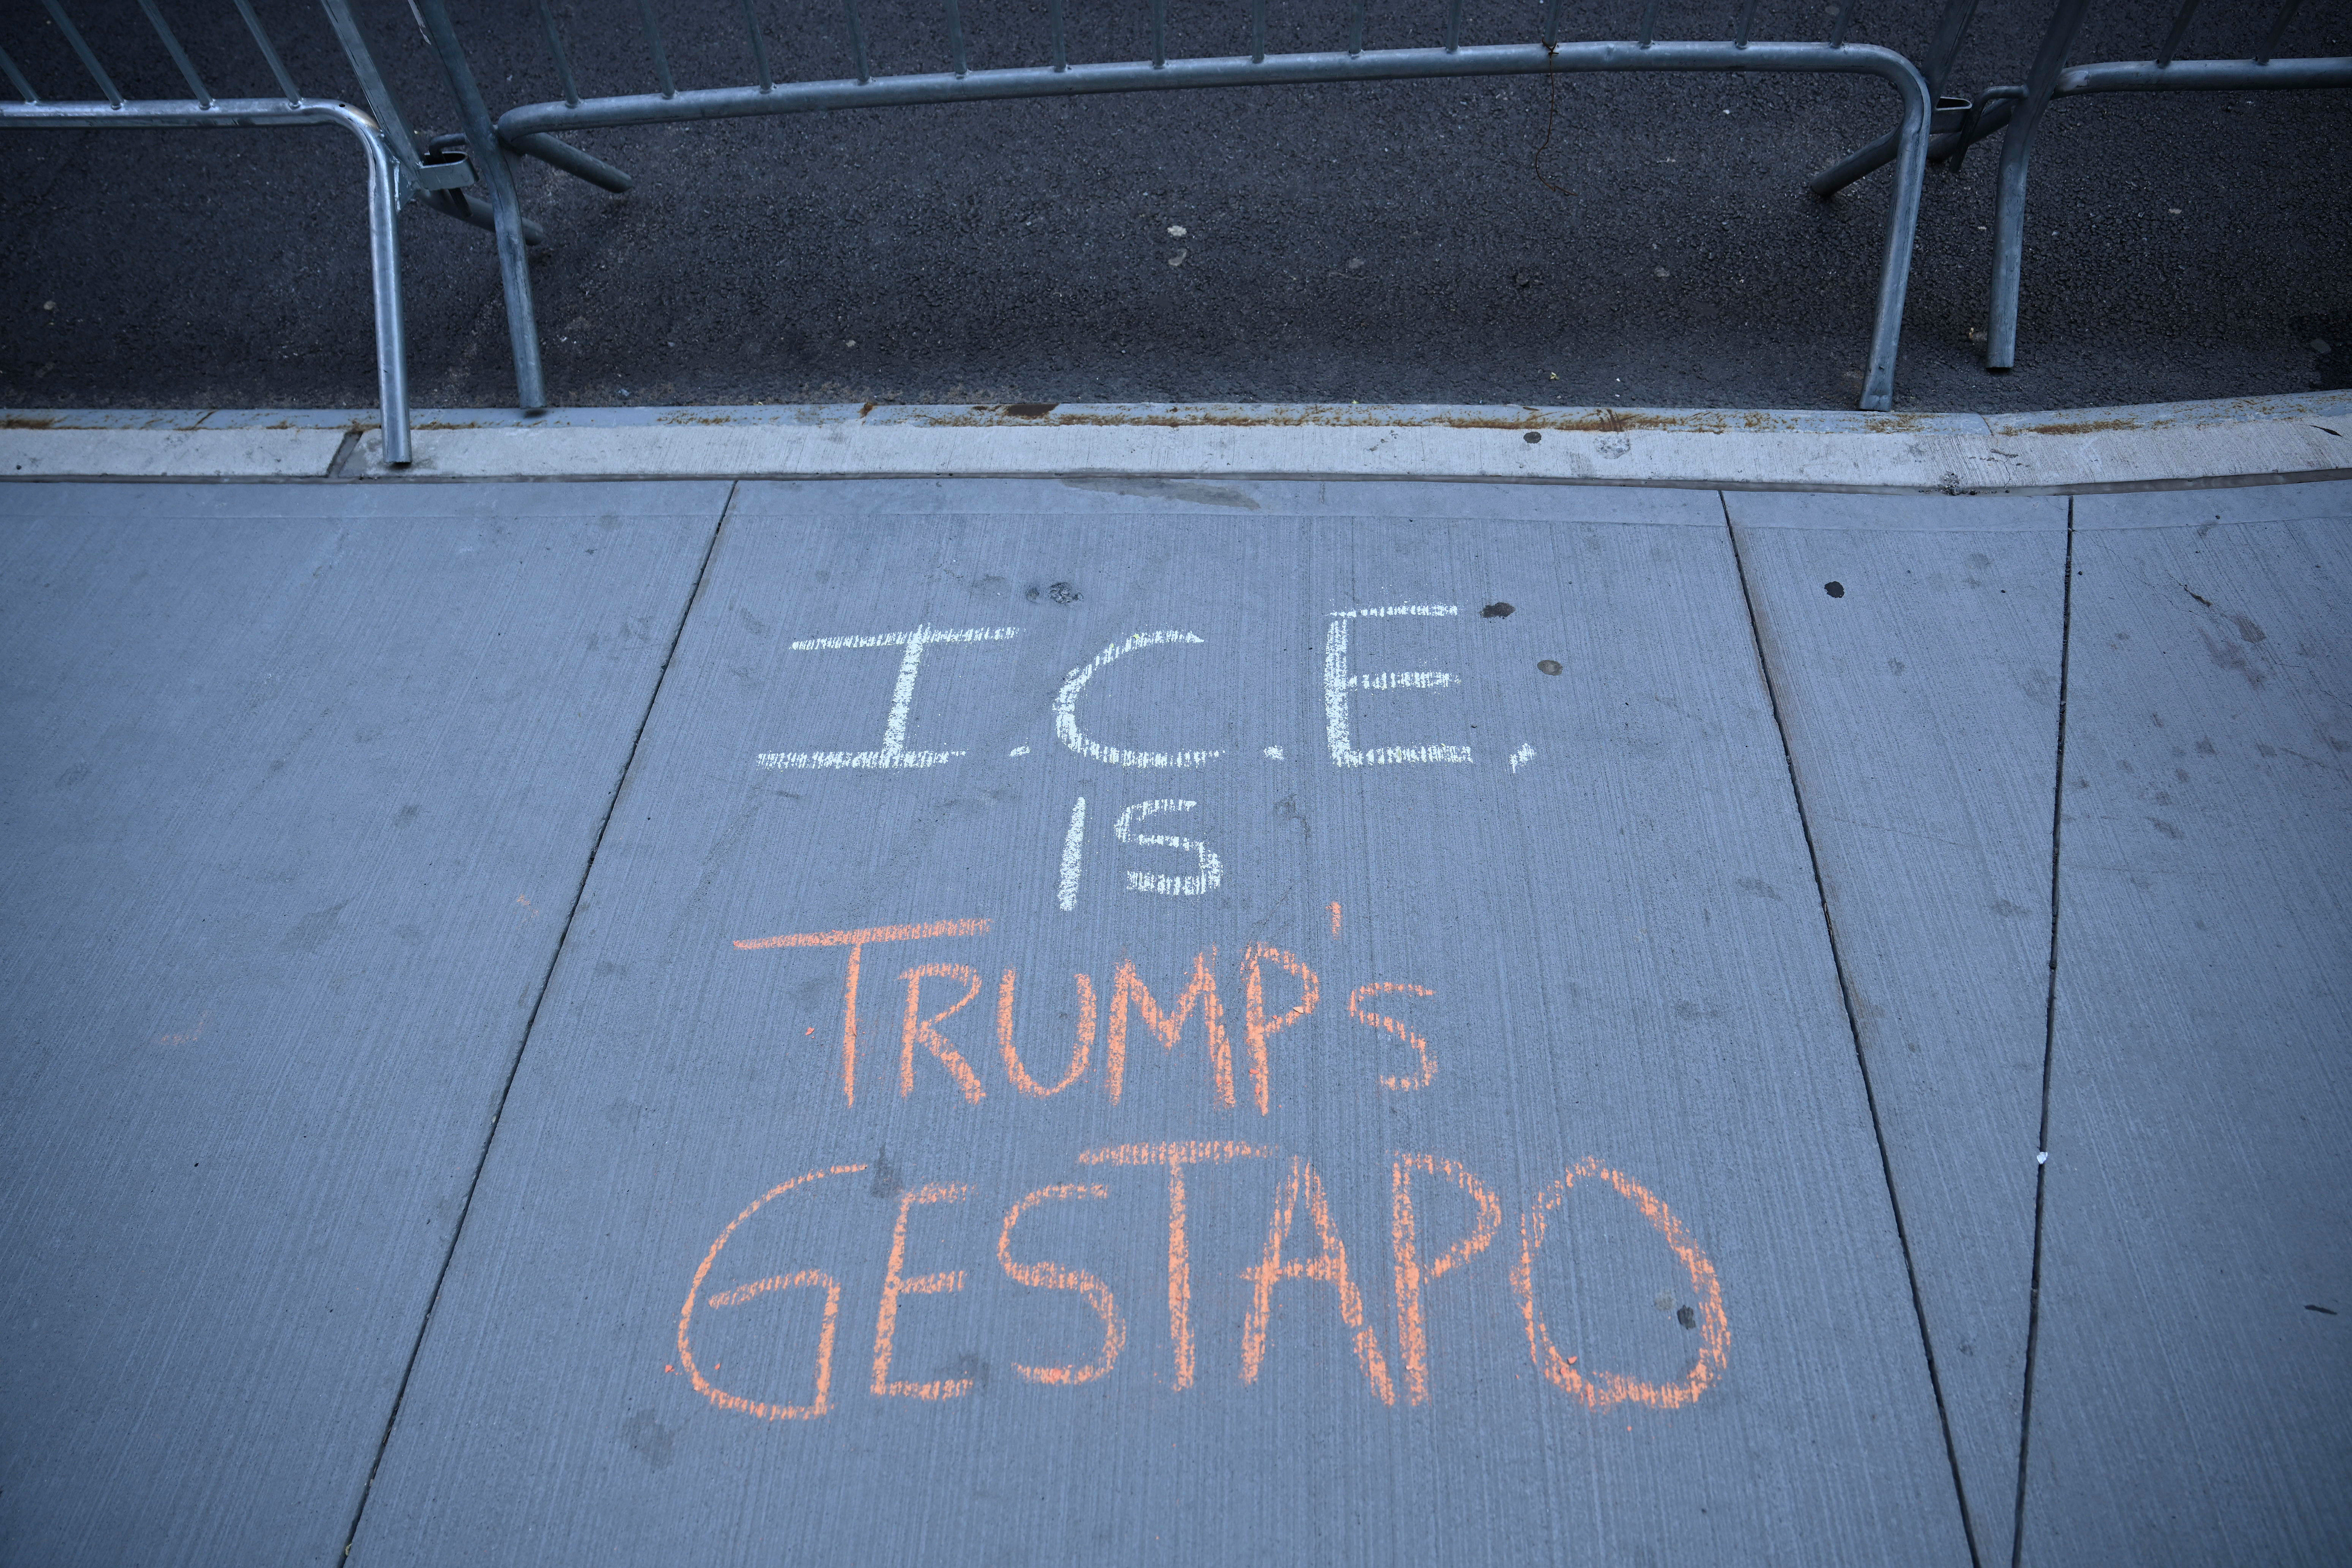 I.C.E,
IS
TRUMP's
GESTAPO